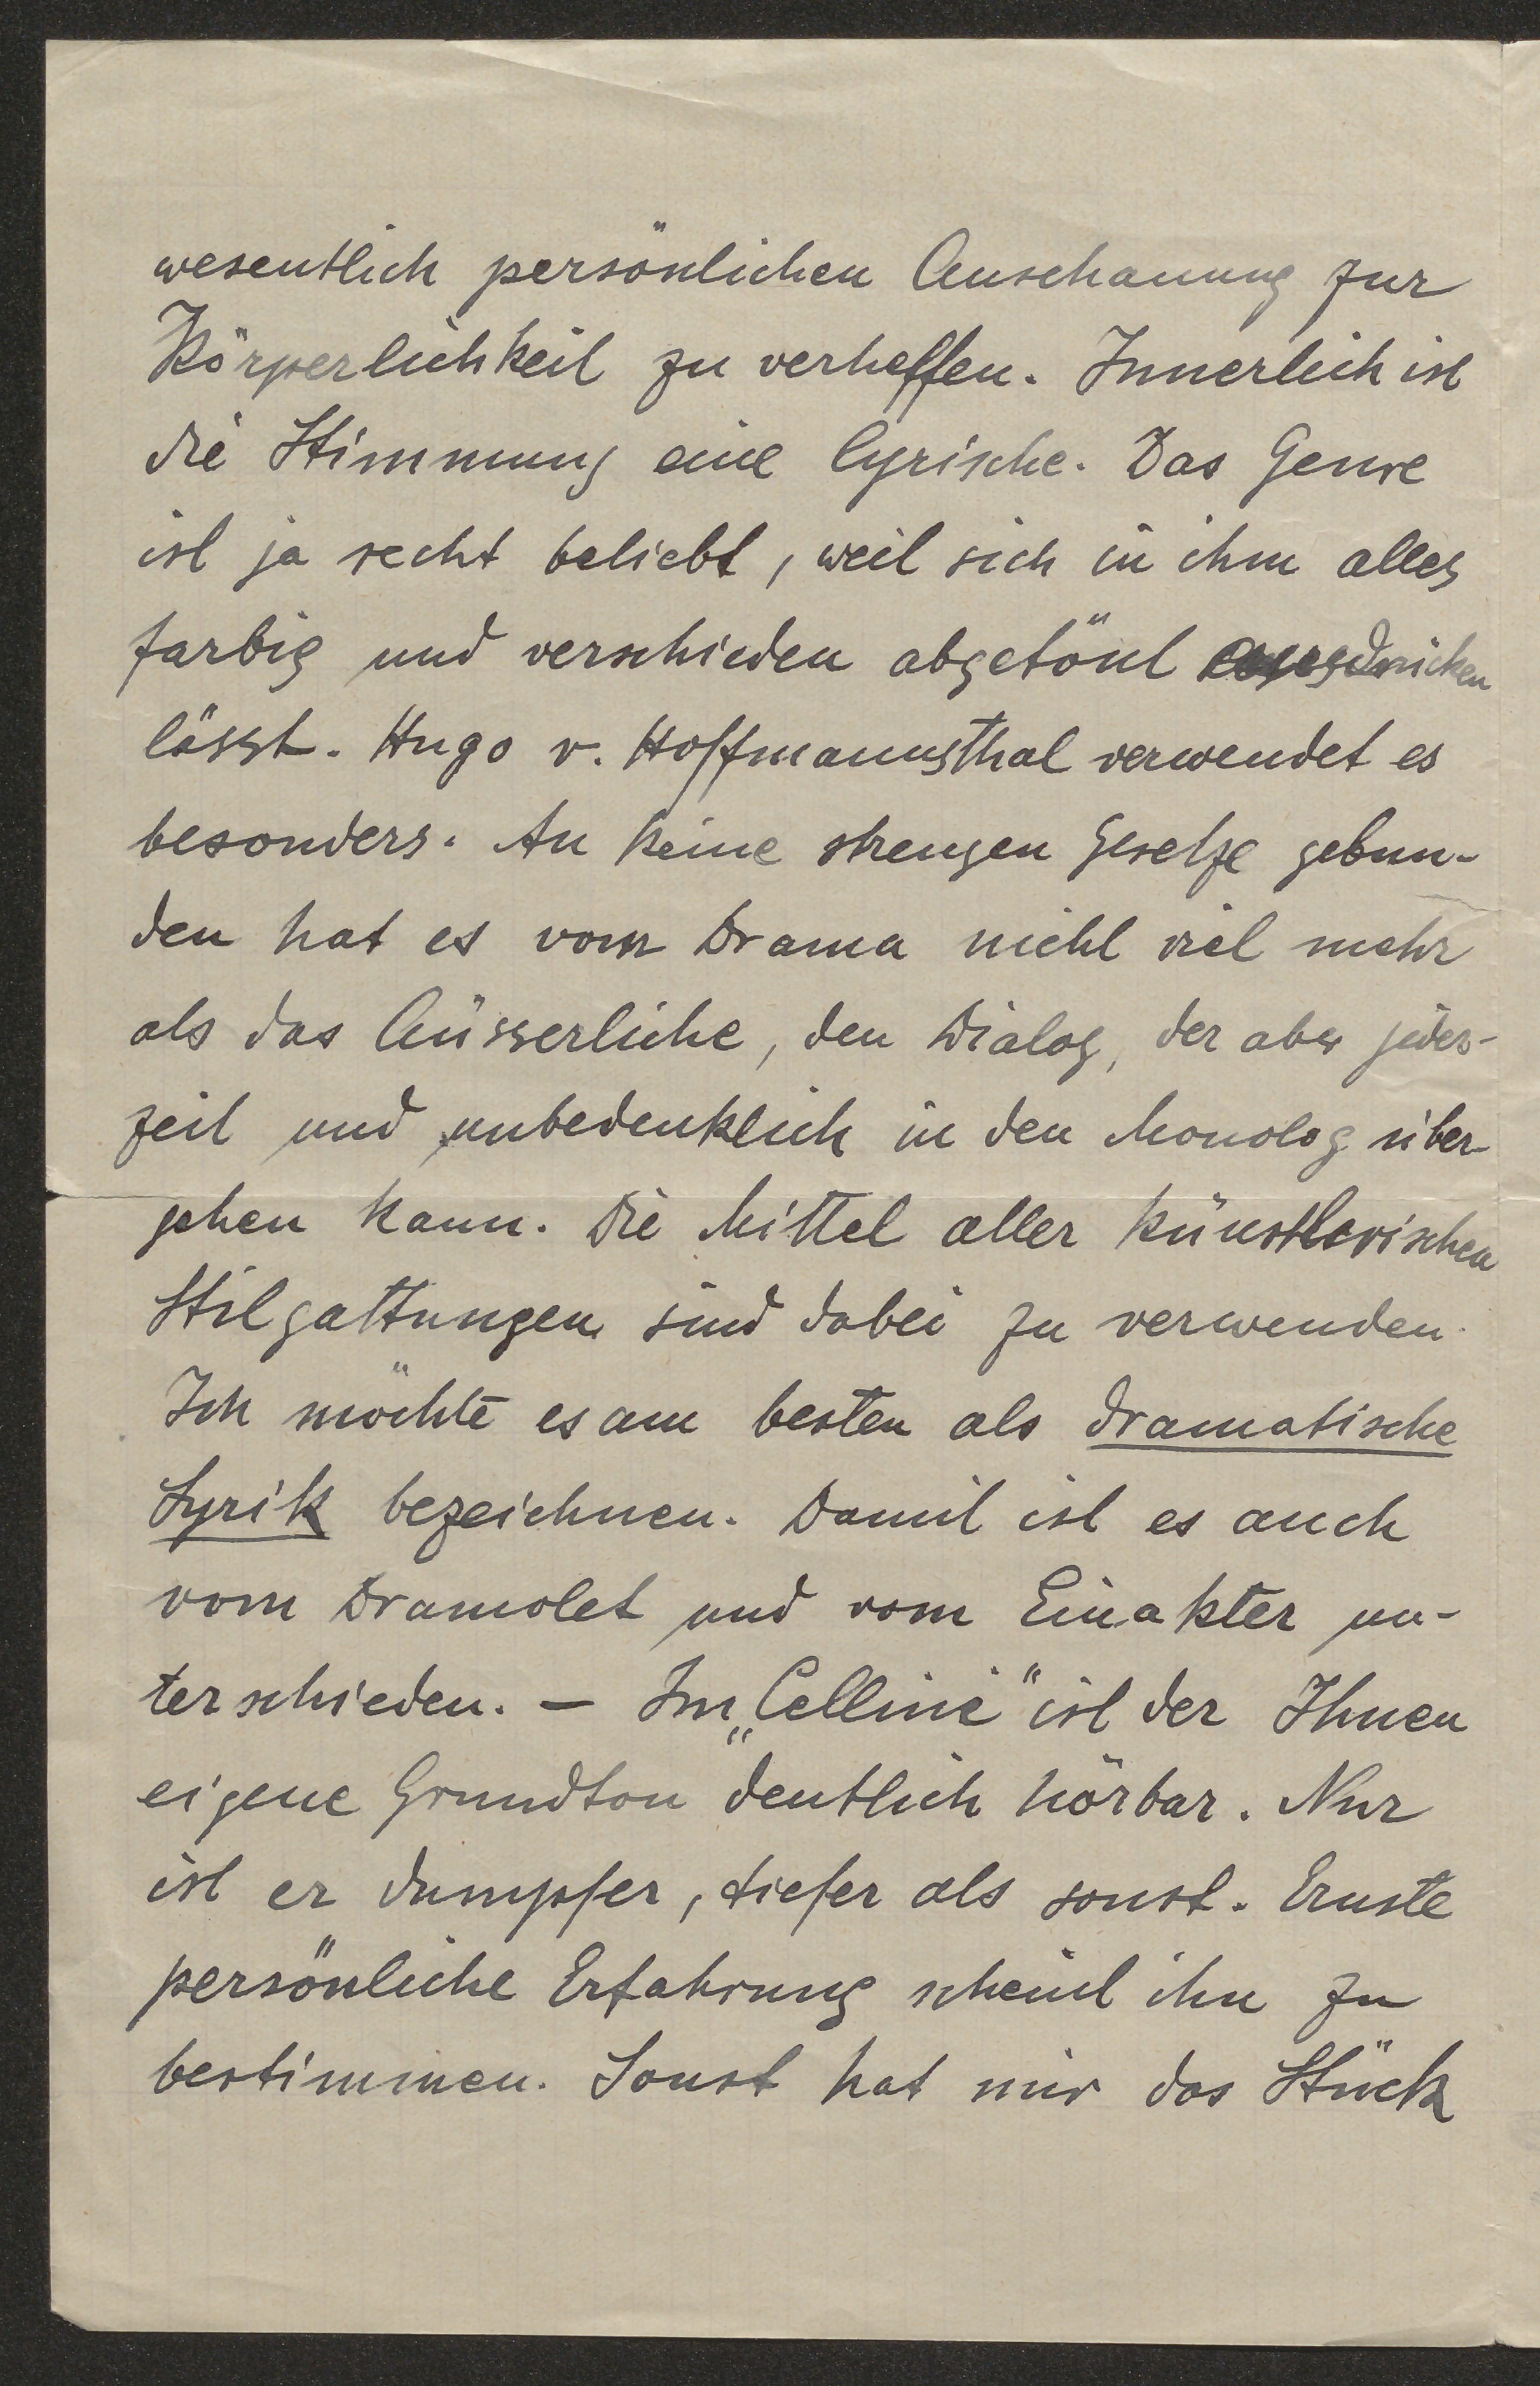 wesentlich persönlichen Anschauung zur
Körperlichkeit zu verhelfen. Innerlich ist
die Stimmung eine lyrische. Das Genre
ist ja recht beliebt, weil sich in ihm alles
farbig und verschieden abgetönt ausdrücken
lässt. Hugo v. Hoffmannsthal verwendet es
besonders. An keine strengen Gesetze gebun-
den hat es vom Drama nicht viel mehr
als das Äüsserliche, den Dialog, der aber jeder-
zeit und unbedenklich in den Monolog über-
gehen kann. Die Mittel aller künstlerischen
Stilgattungen sind dabei zu verwenden.
Ich möchte es am besten als dramatische
Lyrik bezeichnen. Damit ist es auch
vom Dramolet und vom Einakter un-
terschieden. – Im „Cellini“ ist der Ihnen
eigene Grundton deutlich hörbar. Nur
ist er dumpfer, tiefer als sonst. Ernste
persönliche Erfahrung scheint ihn zu
bestimmen. Sonst hat mir das Stück